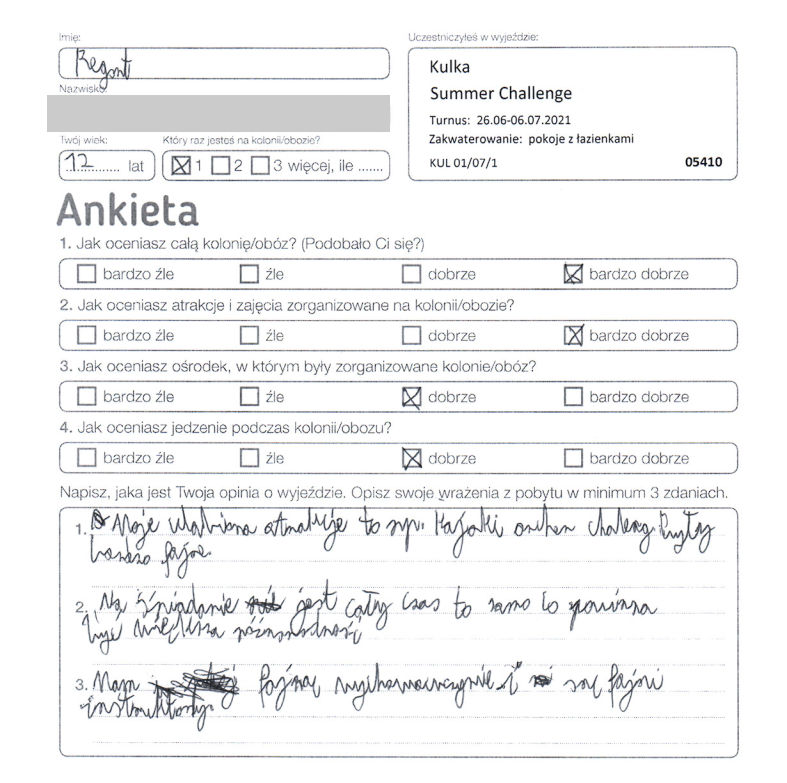 Imię:
Uczestniczyłeś w wyjeździe:
Kulka
Summer Challenge
Nazwisko:
Turnus: 26.06-06.07.2021
Zakwaterowanie: pokoje z łazienkami
KUL 01/07/1 05410
Twój wiek: Który raz jesteś na kolonii/obozie?
12 lat 1 2 3 więcej, ile .......
Ankieta
1. Jak oceniasz całą kolonię/obóz? (Podobało Ci się?)
bardzo źle źle dobrze bardzo dobrze
2. Jak oceniasz atrakcje i zajęcia zorganizowane na kolonii/obozie?
bardzo źle źle dobrze bardzo dobrze
3. Jak oceniasz ośrodek, w którym były zorganizowane kolonie/obóz?
bardzo źle źle dobrze bardzo dobrze
4. Jak oceniasz jedzenie podczas kolonii/obozu?
bardzo źle źle dobrze bardzo dobrze
Napisz, jaka jest Twoja opinia o wyjeździe. Opisz swoje wrażenia z pobytu w minimum 3 zdaniach.
1. Moje to np. Kajaki Były
bardzo fajne.
2. Na śniadanie jest cały czas to samo to powinna
być większa różnorodność
3. Mam fajną wychowawczynie i są fajni
instruktorzy.